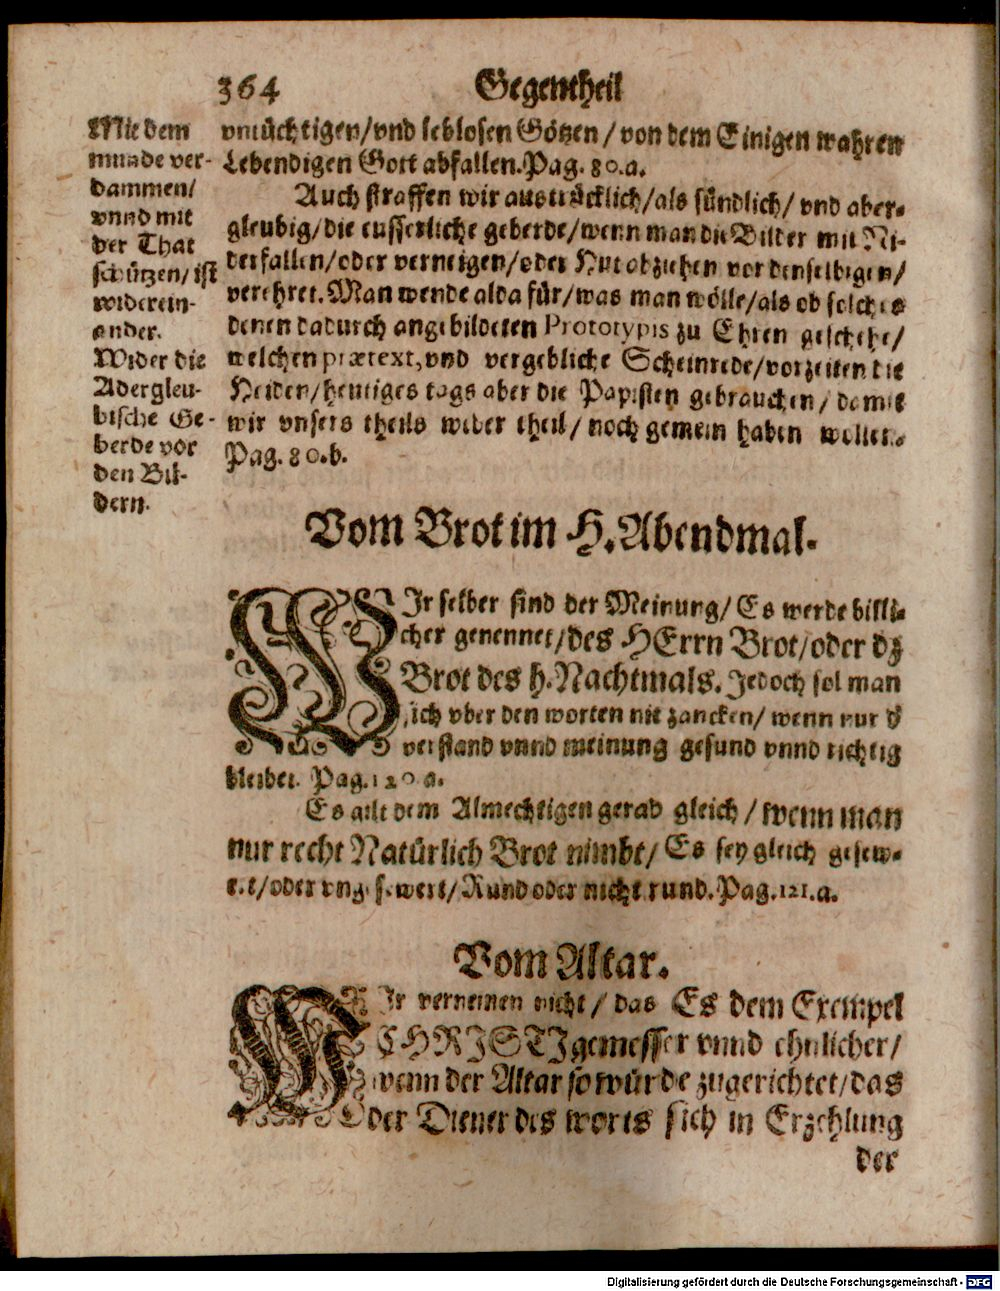 364 Gegentheil
Mit dem
munde ver-
dammen/
vnnd mit
der That
schützen/ ist
widerein-
ander.
Wider die
Abergleu-
bische Ge-
berde vor
den Bil-
dern.
vntüchtigen/vnd leblosen Götzen/von dem Einigen wahren
Lebendigen Gott abfallen. Pag. 80.a.
Auch straffen wir austrücklich/als sündlich/ vnd aber-
gleubig/die eusserliche geberde/wenn man die Bilder mit Ni-
derfallen/oder verneigen/oder Hut abziehen vor denselbigen/
verehret. Man wende alda für/was man wölle/als ob solches
denen dadurch angebildeten Prototypis zu Ehren geschehe/
welchen prætext, vnd vergebliche Scheinrede/vorzeiten die
Heiden/heutiges tags aber die Papisten gebrauchen/ damit
wir vnsers theils weder theil/ noch gemein haben wollen.
Pag. 80.b.
Vom Brot im H. Abendmal.
WIr selber sind der Meinung/ Es werde billi-
cher genennet/des HErrn Brot/oder dz
Brot des h. Nachtmals. Jedoch sol man
sich vber den worten nit zancken/ wenn nur d̕
verstand vnnd meinung gesund vnnd richtig
bleibet. Pag. 120 a.
Es gilt dem Almechtigen gerad gleich/ wenn man
nur recht Natürlich Brot nimbt/ Es sey gleich gesew-
ret/oder vngesewert/Rund oder nicht rund. Pag. 121. a.
Vom Altar.
WIr verneinen nicht/ das Es dem Exempel
CHRISTI gemesser vnnd ehnlicher/
wenn der Altar so würde zugerichtet/das
der Diener des worts sich in Erzehlung
der
Digitalisierung gefördert durch die Deutsche Forschungsgemeinschaft - DFG